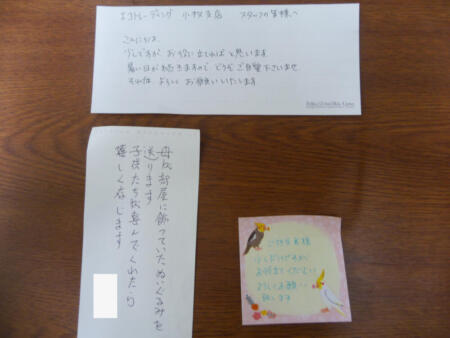 エコトレーディング 小牧支店 スタッフの皆様へ
こんにちは。
少しですが お役に立てればと思います
暑い日が続きますので どうぞご自愛下さいませ
それでは よろしく お願いいたします
母が部屋に飾っていたぬいぐるみを
送ります
子供たちが喜んでくれたら
嬉しく存じます
ご担当者様
少しだけですが
お役立てください
よろしくお願い
致します